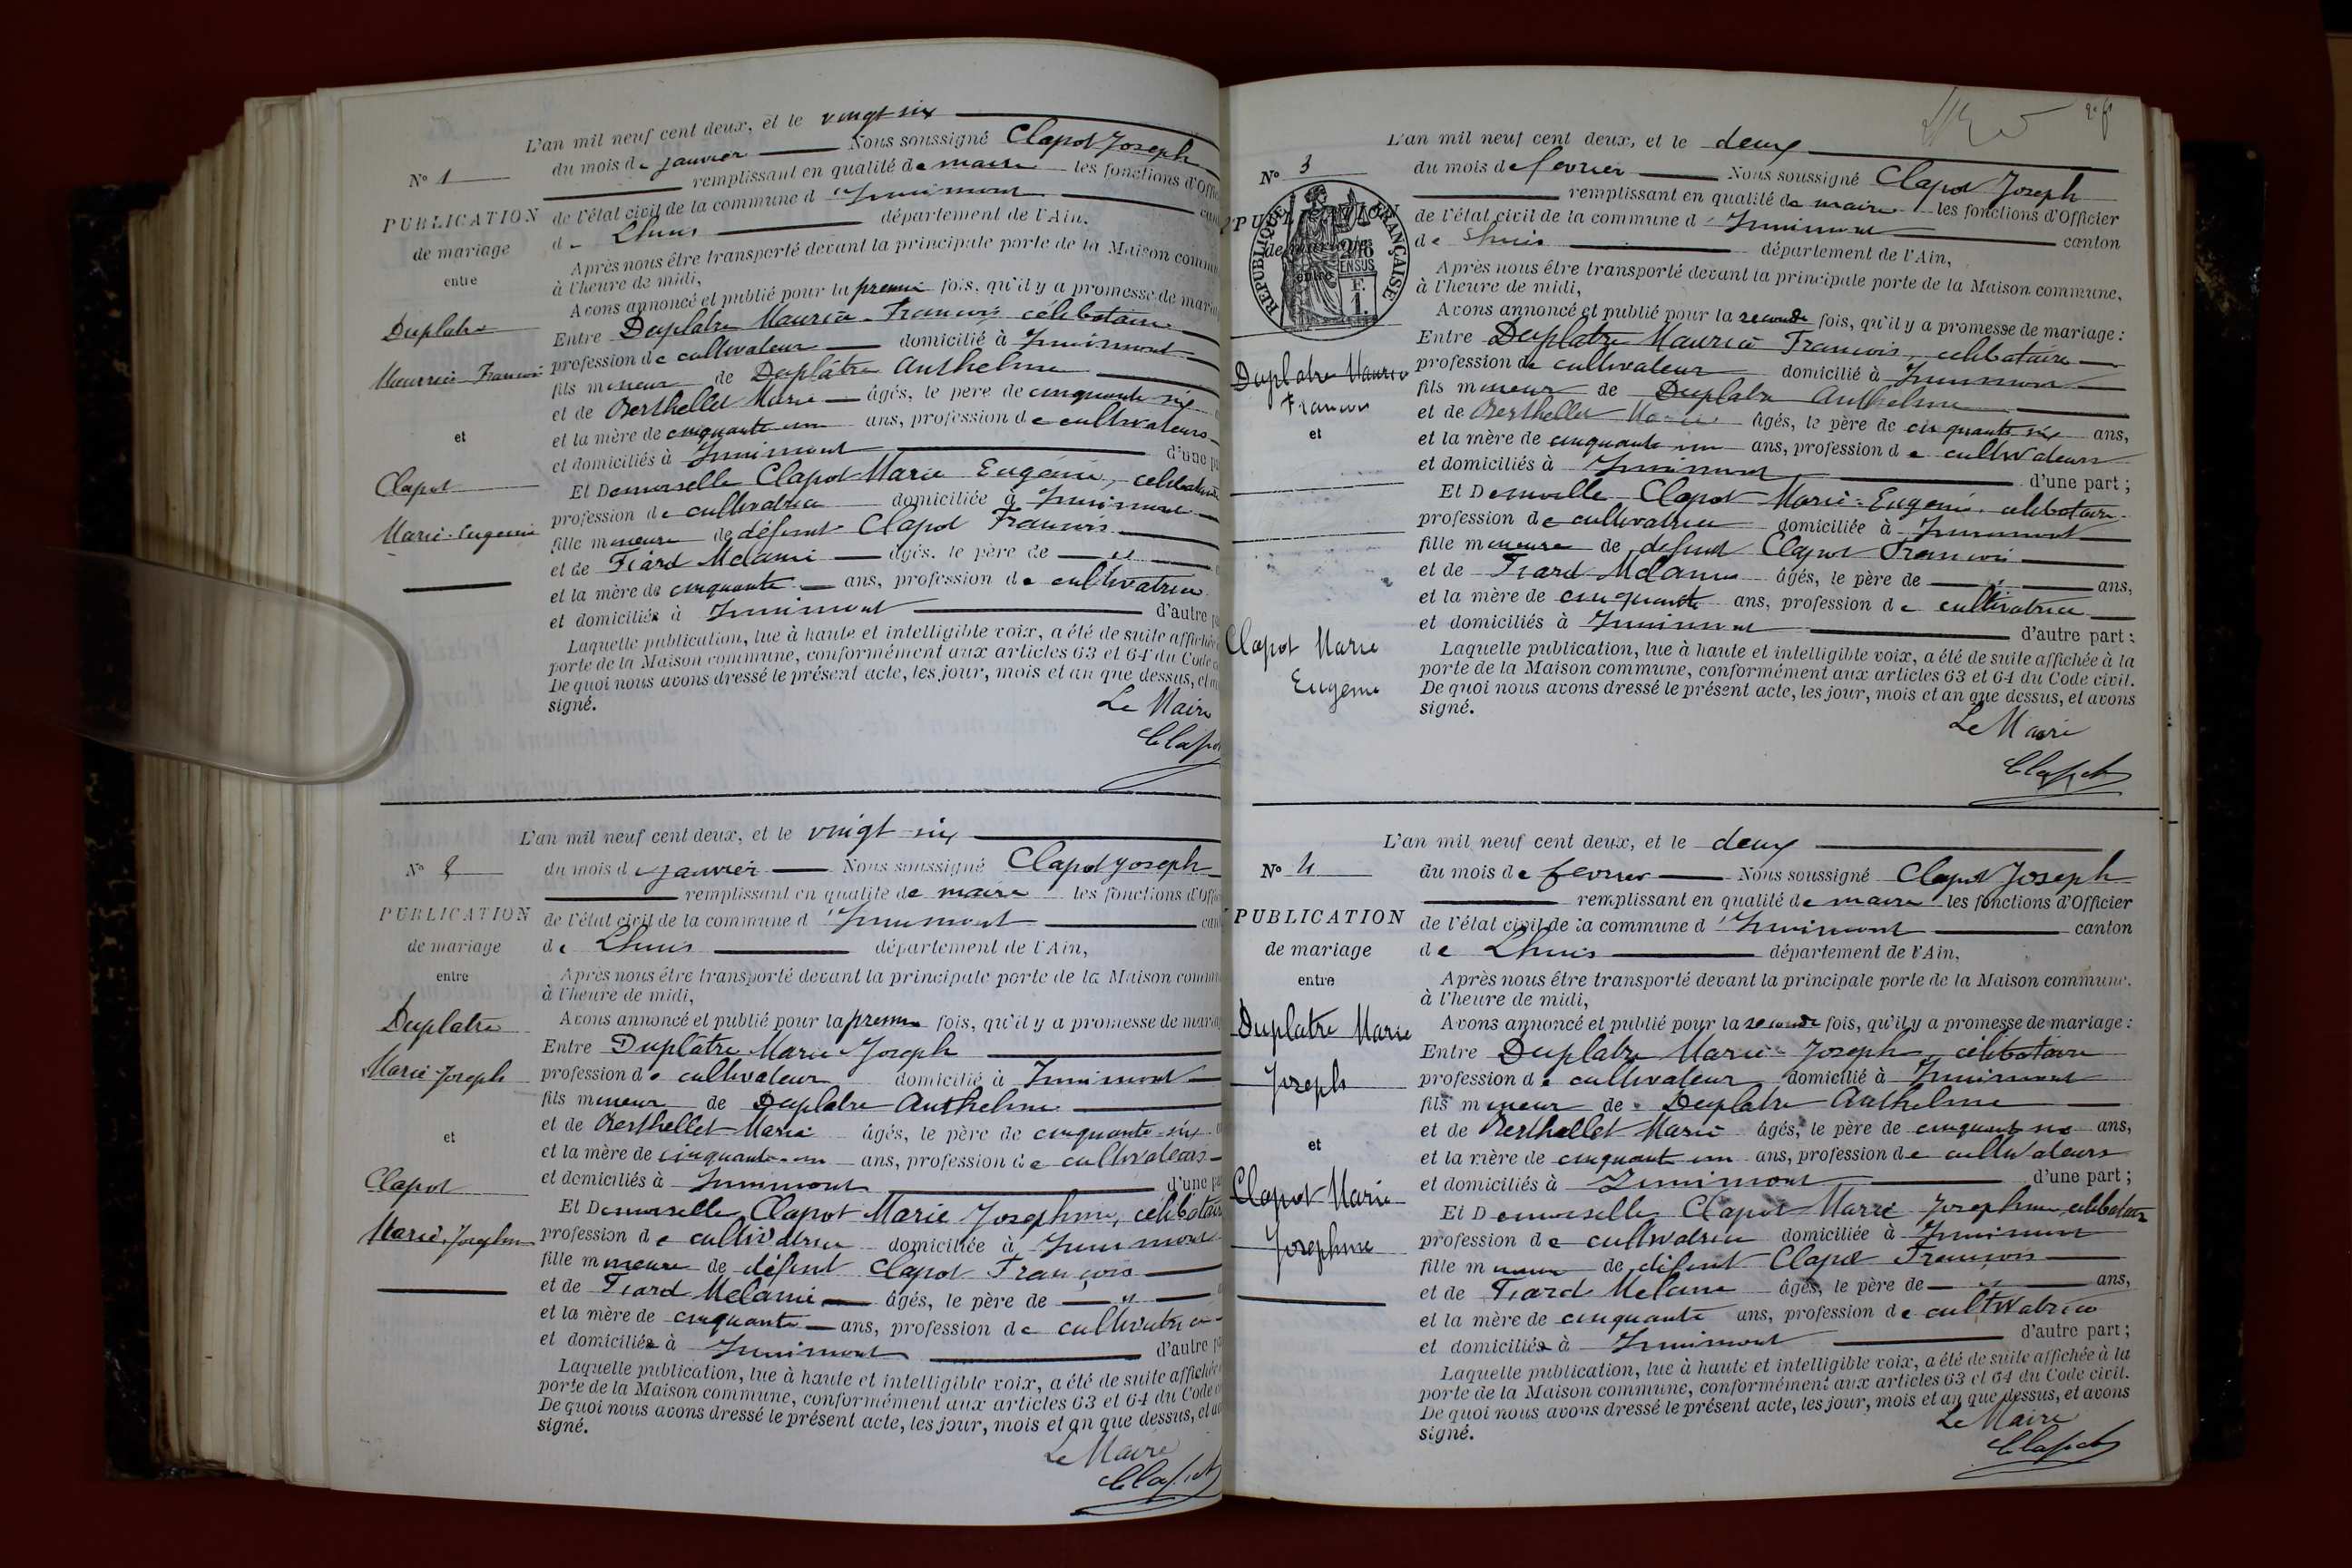 L'an mil neuf cent deux, et le vingt six
du mois de janvier Nous soussigné Clapot Joseph
remplissant en qualité de maire les fonctions d'Offic
de l'état civil de la commune d'Innimont can
de Lhuis département de l'Ain.
Après nous être transporté devant la principale porte de la Maison commune
à l'heure de midi,
Avons annoncé et publié pour la premiè fois, qu'il y a promesse de mari
Entre Duplatre Maurice-François célibataire
profession de cultivateur domicilié à Innimont
fils mineur de Duplâtre Anthelme
et de Berthellet Marie âgés, le père de cinquante six
et la mère de cinquante un ans, profession de cultivateurs
et domiciliés à Innimont d'une pa
Et Demoiselle Clapot Marie Eugénie, célibataire
profession de cultivatrice domiciliée à Innimont
fille mineure de défunt Clapot François
et de Fiard Mélanie âgés, le père de "
et la mère de cinquante ans, profession de cultivatrice
et domiciliés à Innimont d'autre pa
Laquelle publication, lue à haute et intelligible voix, a été de suite affichée
porte de la Maison commune, conformément aux articles 63 et 64 du Code c
De quoi nous avons dressé le présent acte, les jour, mois et an que dessus, et av
signé.
Le Maire
Clapot
N° 1
PUBLICATION
de mariage
entre
Duplatre
Maurice François
et
Clapot
Marie-Eugénie
L'an mil neuf cent deux, et le vingt six
du mois de janvier Nous soussigné Clapot Joseph
remplissant en qualité de maire les fonctions d'Offic
de l'état civil de la commune d'Innimont can
de Lhuis département de l'Ain,
Après nous être transporté devant la principale porte de la Maison commun
à l'heure de midi,
Avons annoncé et publié pour la premiè fois, qu'il y a promesse de maria
Entre Duplâtre Marie Joseph
profession de cultivateur domicilié à Innimont
fils mineur de Duplatre Anthelme
et de Berthellet Marie âgés, le père de cinquante-six
et la mère de cinquante-un ans, profession de cultivateurs
et domiciliés à Innimont d'une pa
Et Demoiselle Clapot Marie Josephine, célibataire
profession de cultivatrice domiciliée à Innimont
fille mineure de défunt Clapot François
et de Fiard Mélanie âgés, le père de "
et la mère de cinquante ans, profession de cultivatrice
et domiciliés à Innimont d'autre pa
Laquelle publication, lue à haute et intelligible voix, a été de suite affichée
porte de la Maison commune, conformément aux articles 63 et 64 du Code c
De quoi nous avons dressé le présent acte, les jour, mois et an que dessus, et av
signé.
Le Maire
Clapot
N° 2
PUBLICATION
de mariage
entre
Duplatre
Marie-Joseph
et
Clapot
Marie-Josephine
L'an mil neuf cent deux, et le deux
du mois de fevrier Nous soussigné Clapot Joseph
remplissant en qualité de maire les fonctions d'Officier
de l'état civil de la commune d'Innimont canton
de Lhuis département de l'Ain,
Après nous être transporté devant la principale porte de la Maison commune,
à l'heure de midi,
Avons annoncé et publié pour la seconde fois, qu'il y a promesse de mariage :
Entre Duplatre Maurice François, célibataire
profession de cultivateur domicilié à Innimont
fils mineur de Duplatre Anthelme
et de Berthellet Marie âgés, le père de cinquante six ans,
et la mère de cinquante un ans, profession de cultivateurs
et domiciliés à Innimont d'une part ;
Et Demoiselle Clapot Marie-Eugénie, célibataire
profession de cultivatrice domiciliée à Innimont
fille mineure de defunt Clapot François
et de Fiard Mélanie âgés, le père de " ans,
et la mère de cinquante ans, profession de cultivatrice
et domiciliés à Innimont d'autre part ;
Laquelle publication, lue à haute et intelligible voix, a été de suite affichée à la
porte de la Maison commune, conformément aux articles 63 et 64 du Code civil.
De quoi nous avons dressé le présent acte, les jour, mois et an que dessus, et avons
signé.
Le Maire
Clapot
N° 3
PUBLICATION
de mariage
entre
RÉPUBLIQUE FRANÇAISE
2/10
EN SUS
F.
1.
Duplatre Maurice
François
et
Clapot Marie
Eugénie
L'an mil neuf cent deux, et le deux
du mois de fevrier Nous soussigné Clapot Joseph
remplissant en qualité de maire les fonctions d'Officier
de l'état civil de la commune d'Innimont canton
de Lhuis département de l'Ain,
Après nous être transporté devant la principale porte de la Maison commune,
à l'heure de midi,
Avons annoncé et publié pour la seconde fois, qu'il y a promesse de mariage :
Entre Duplatre Marie-Joseph, célibataire
profession de cultivateur domicilié à Innimont
fils mineur de Duplatre Anthelme
et de Berthellet Marie âgés, le père de cinquante six ans,
et la mère de cinquante un ans, profession de cultivateurs
et domiciliés à Innimont d'une part ;
Et Demoiselle Clapot Marie Josephine célibataire
profession de cultivatrice domiciliée à Innimont
fille mineure de défunt Clapot François
et de Fiard Mélanie âgés, le père de " ans,
et la mère de cinquante ans, profession de cultivatrice
et domiciliés à Innimont d'autre part ;
Laquelle publication, lue à haute et intelligible voix, a été de suite affichée à la
porte de la Maison commune, conformément aux articles 63 et 64 du Code civil.
De quoi nous avons dressé le présent acte, les jour, mois et an que dessus, et avons
signé.
Le Maire
Clapot
N° 4
PUBLICATION
de mariage
entre
Duplatre Marie
Joseph
et
Clapot Marie
Josephine